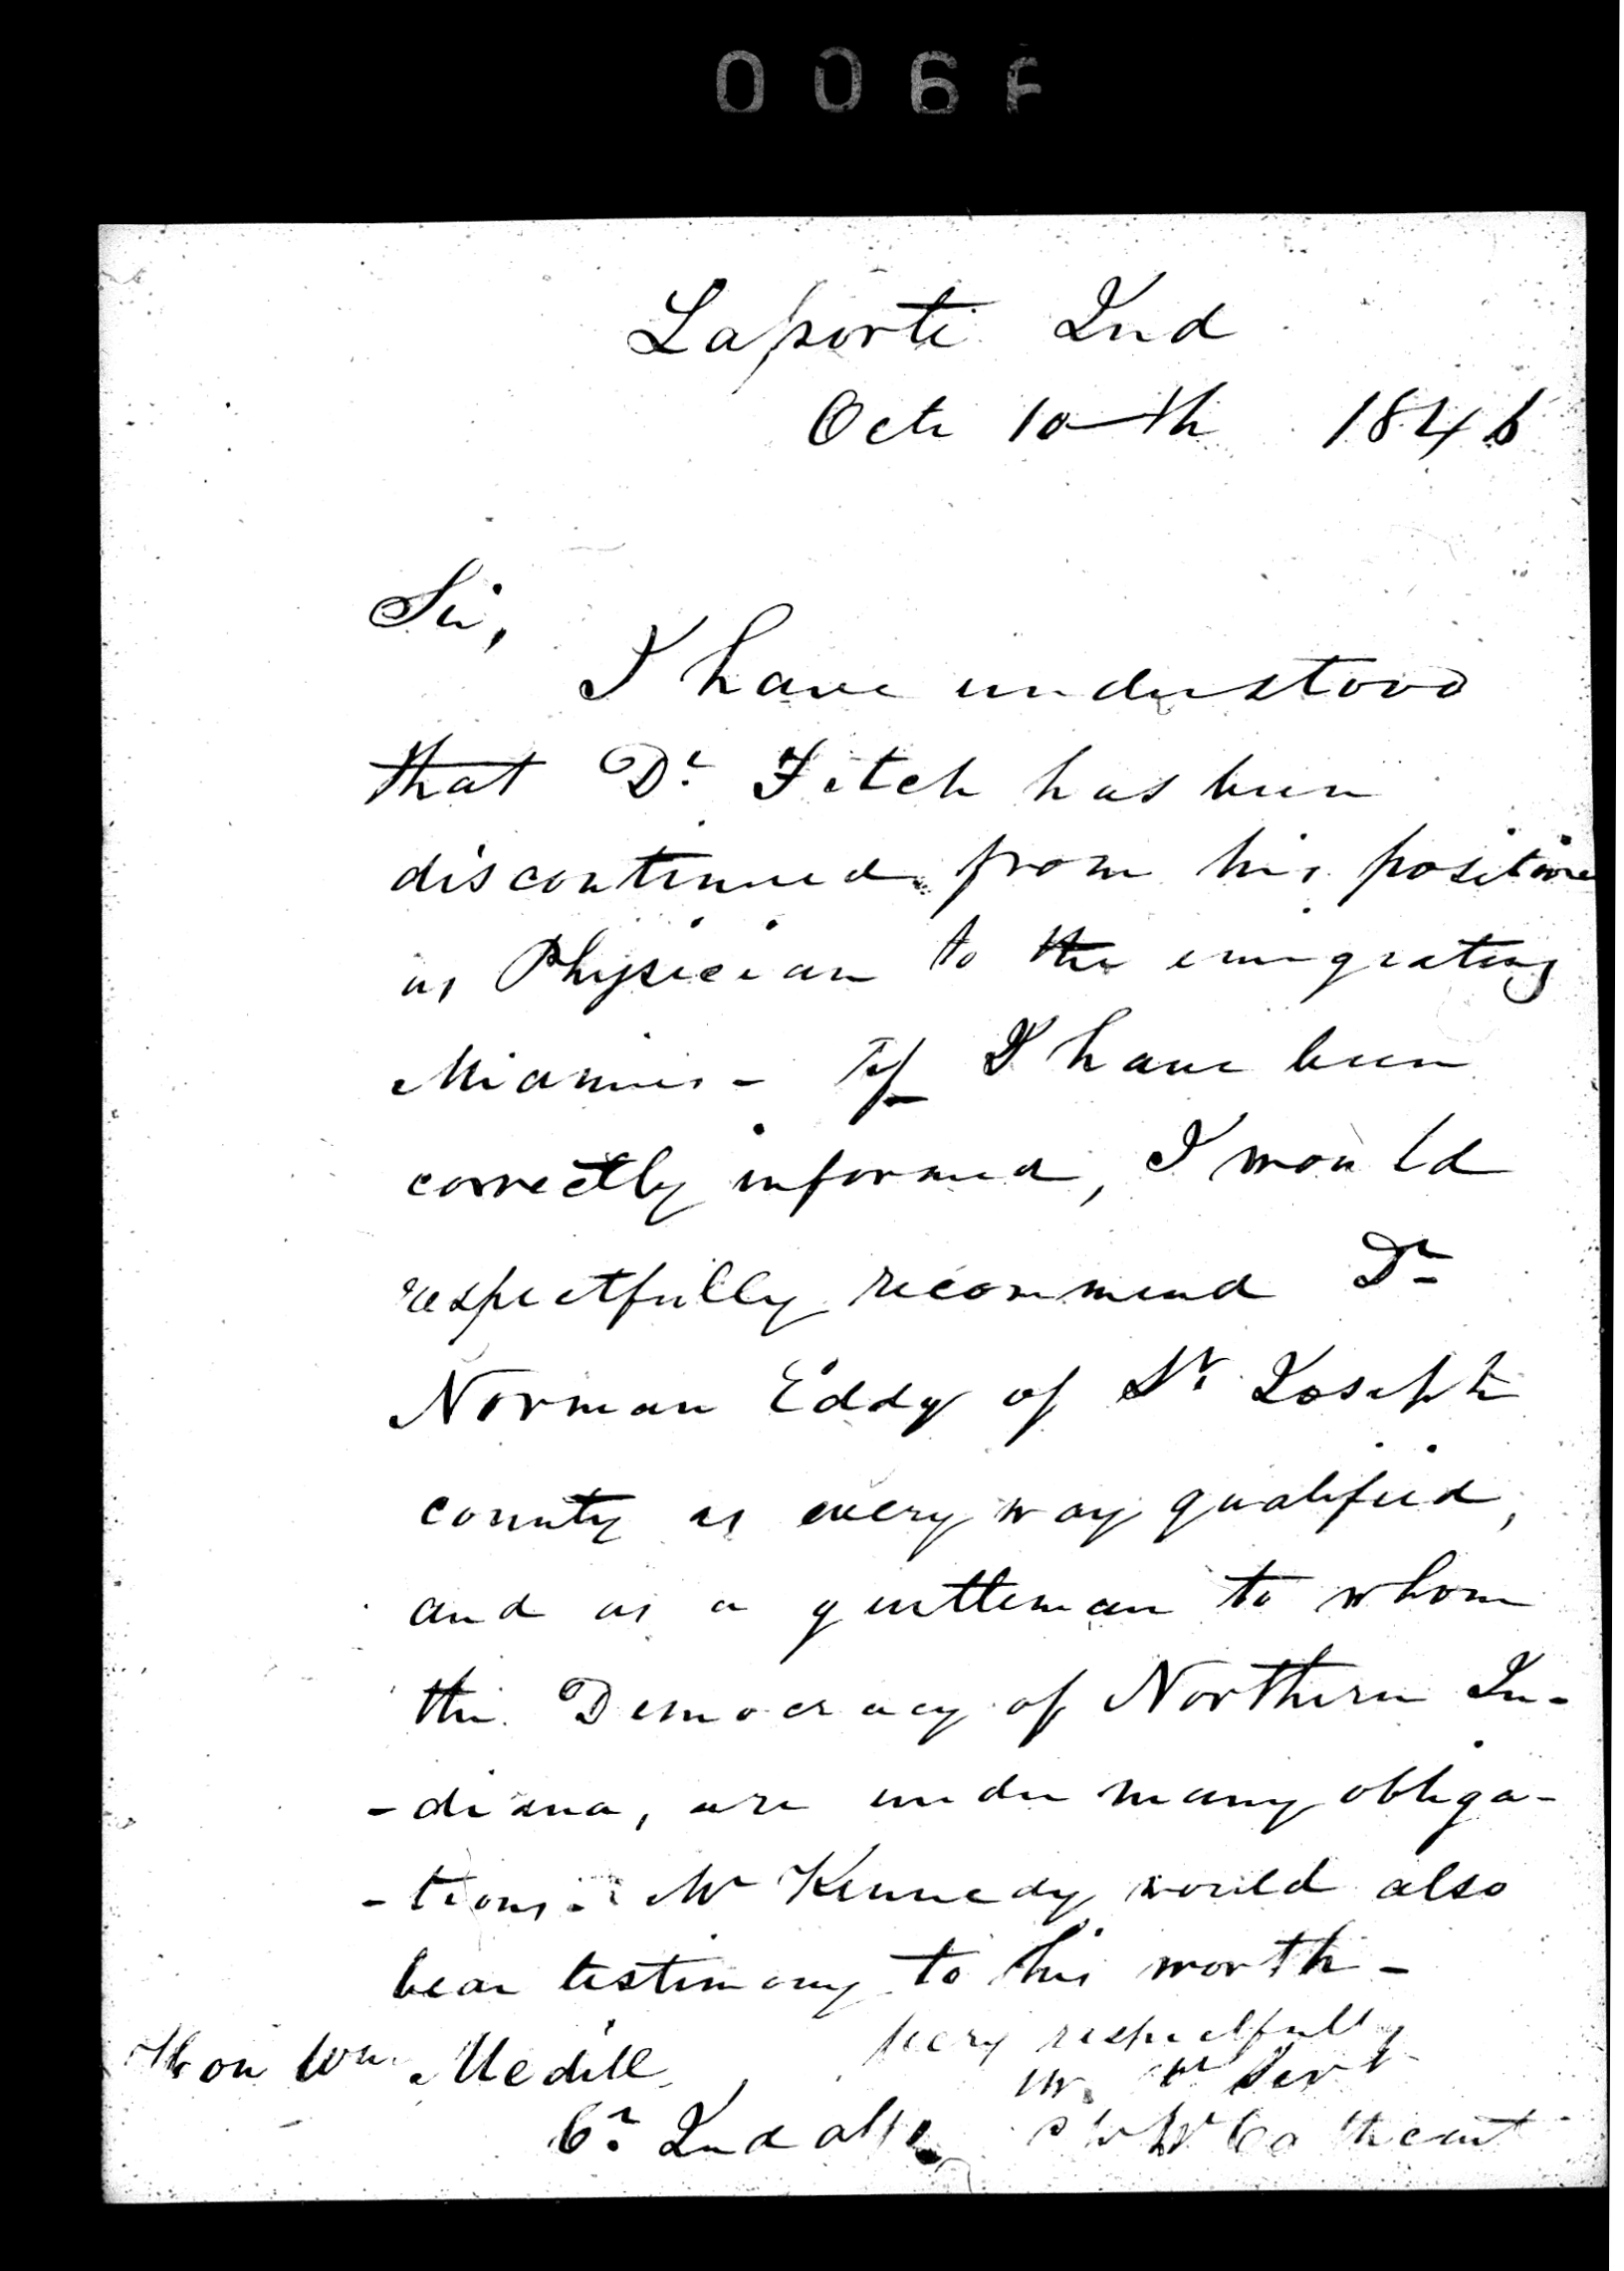 Laporte Ind
Oct. 10th 1846
Sir,
I have understood
that Dr. Fitch has been
discontinued from his position
as Physician to the emigrating
Miamies - If I have been
correctly informed, I would
respectfully recommend Dr
Norman Eddy of St. Joseph
county as every way qualified,
and as a gentleman to whom
the Democracy of Northern In-
-diana, are under many obliga-
-tions - Mr Kennedy would also
bear testimony to his worth -
very respectfully
Hon Wm. Medill
Servt
Cr. Ind affs
W Cathcart